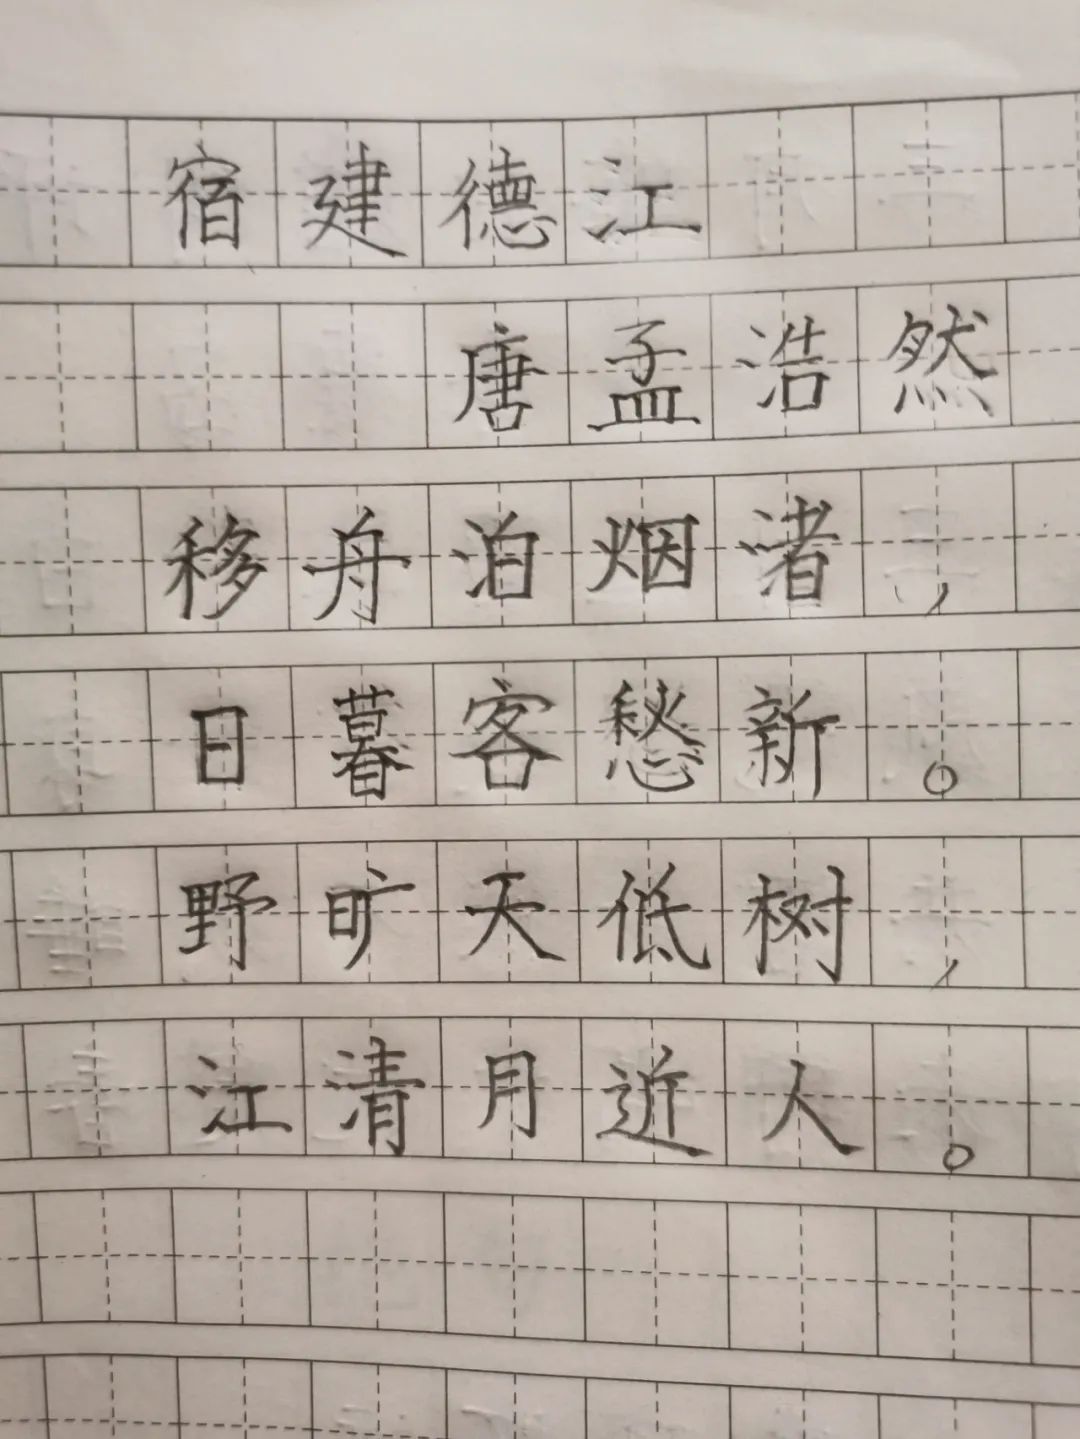 宿建德江
唐孟浩然
移舟泊烟渚,
日暮客愁新。
野旷天低树,
江清月近人。